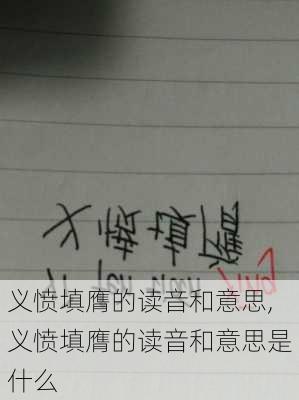 义愤填膺
义愤填膺的读音和意思,
义愤填膺的读音和意思是
什么